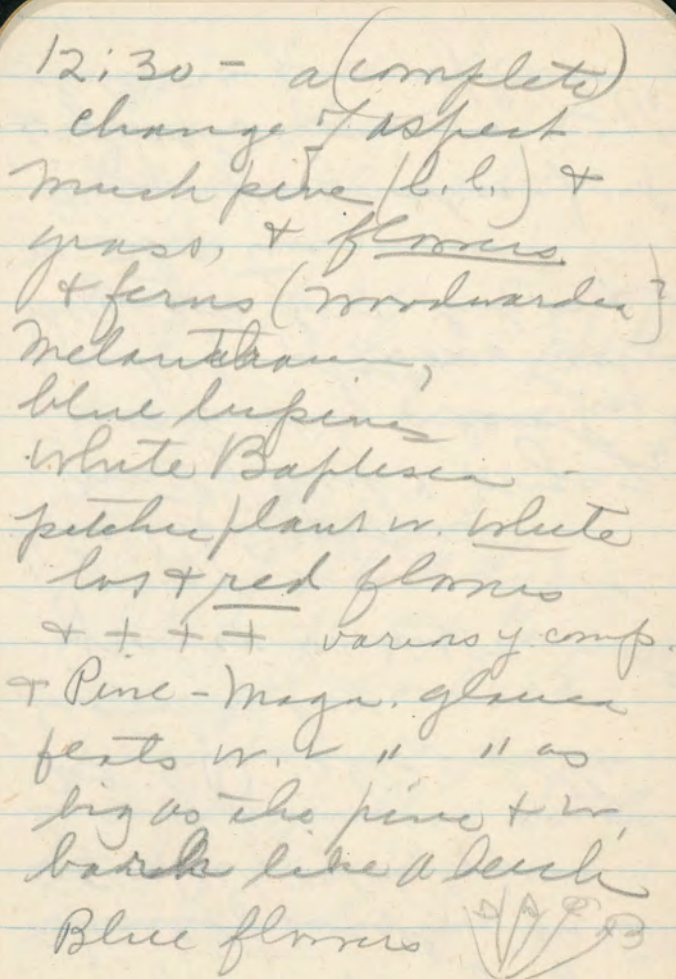 12:30 - a (complete)
change of aspect
Much pine (l.l.) &
grass, & flowers
& ferns (Woodwardia)
Melanthium,
blue lupines
White Baptisia -
pitcher plant w. white
lvs & red flowers
& + + + various y. comp.
& Pine - Magn. glauca
flats w. " " as
big as the pine & w.
bark like a beech
Blue flowers
B